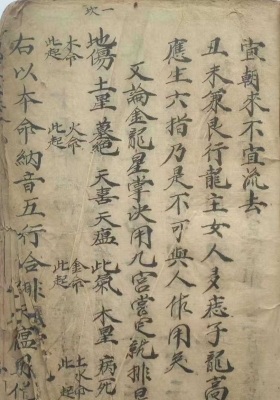 宣朝來不宜流去
丑未兼艮行龍主女人多痣子龍高
應生六指乃是不可與人作用矣
又論金龍星掌決用九宮當定就排星
一坎
地傷土星墓絕天喜天瘟此氣木星病死
水命此起
火命此起
金命此起
土水命此起
右以本命納音五行合排
瘟